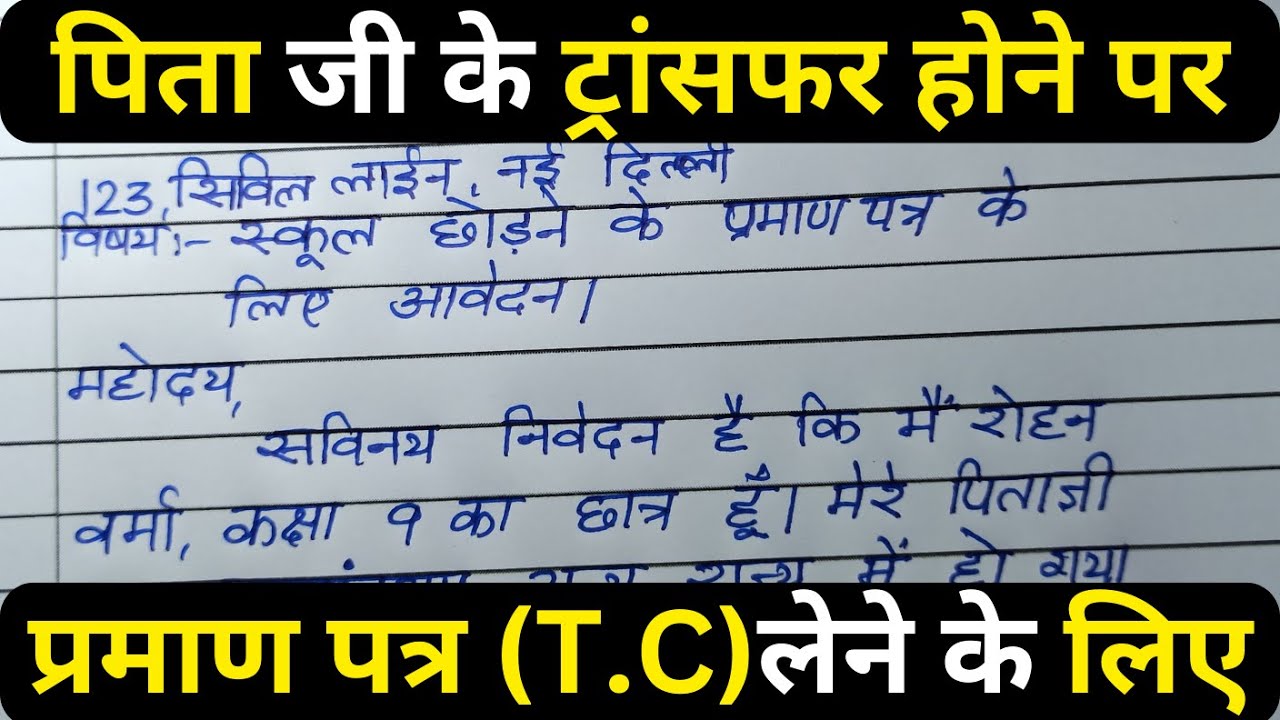 पिता जी के ट्रांसफर होने पर
123, सिविल लाईन, नई दिल्ली
विषय:- स्कूल छोड़ने के प्रमाण पत्र के
लिए आवेदन।
महोदय,
सविनय निवेदन है कि मैं रोहन
वर्मा, कक्षा 9 का छात्र हूँ। मेरे पिताजी
में हो गया
प्रमाण पत्र (T.C)लेने के लिए